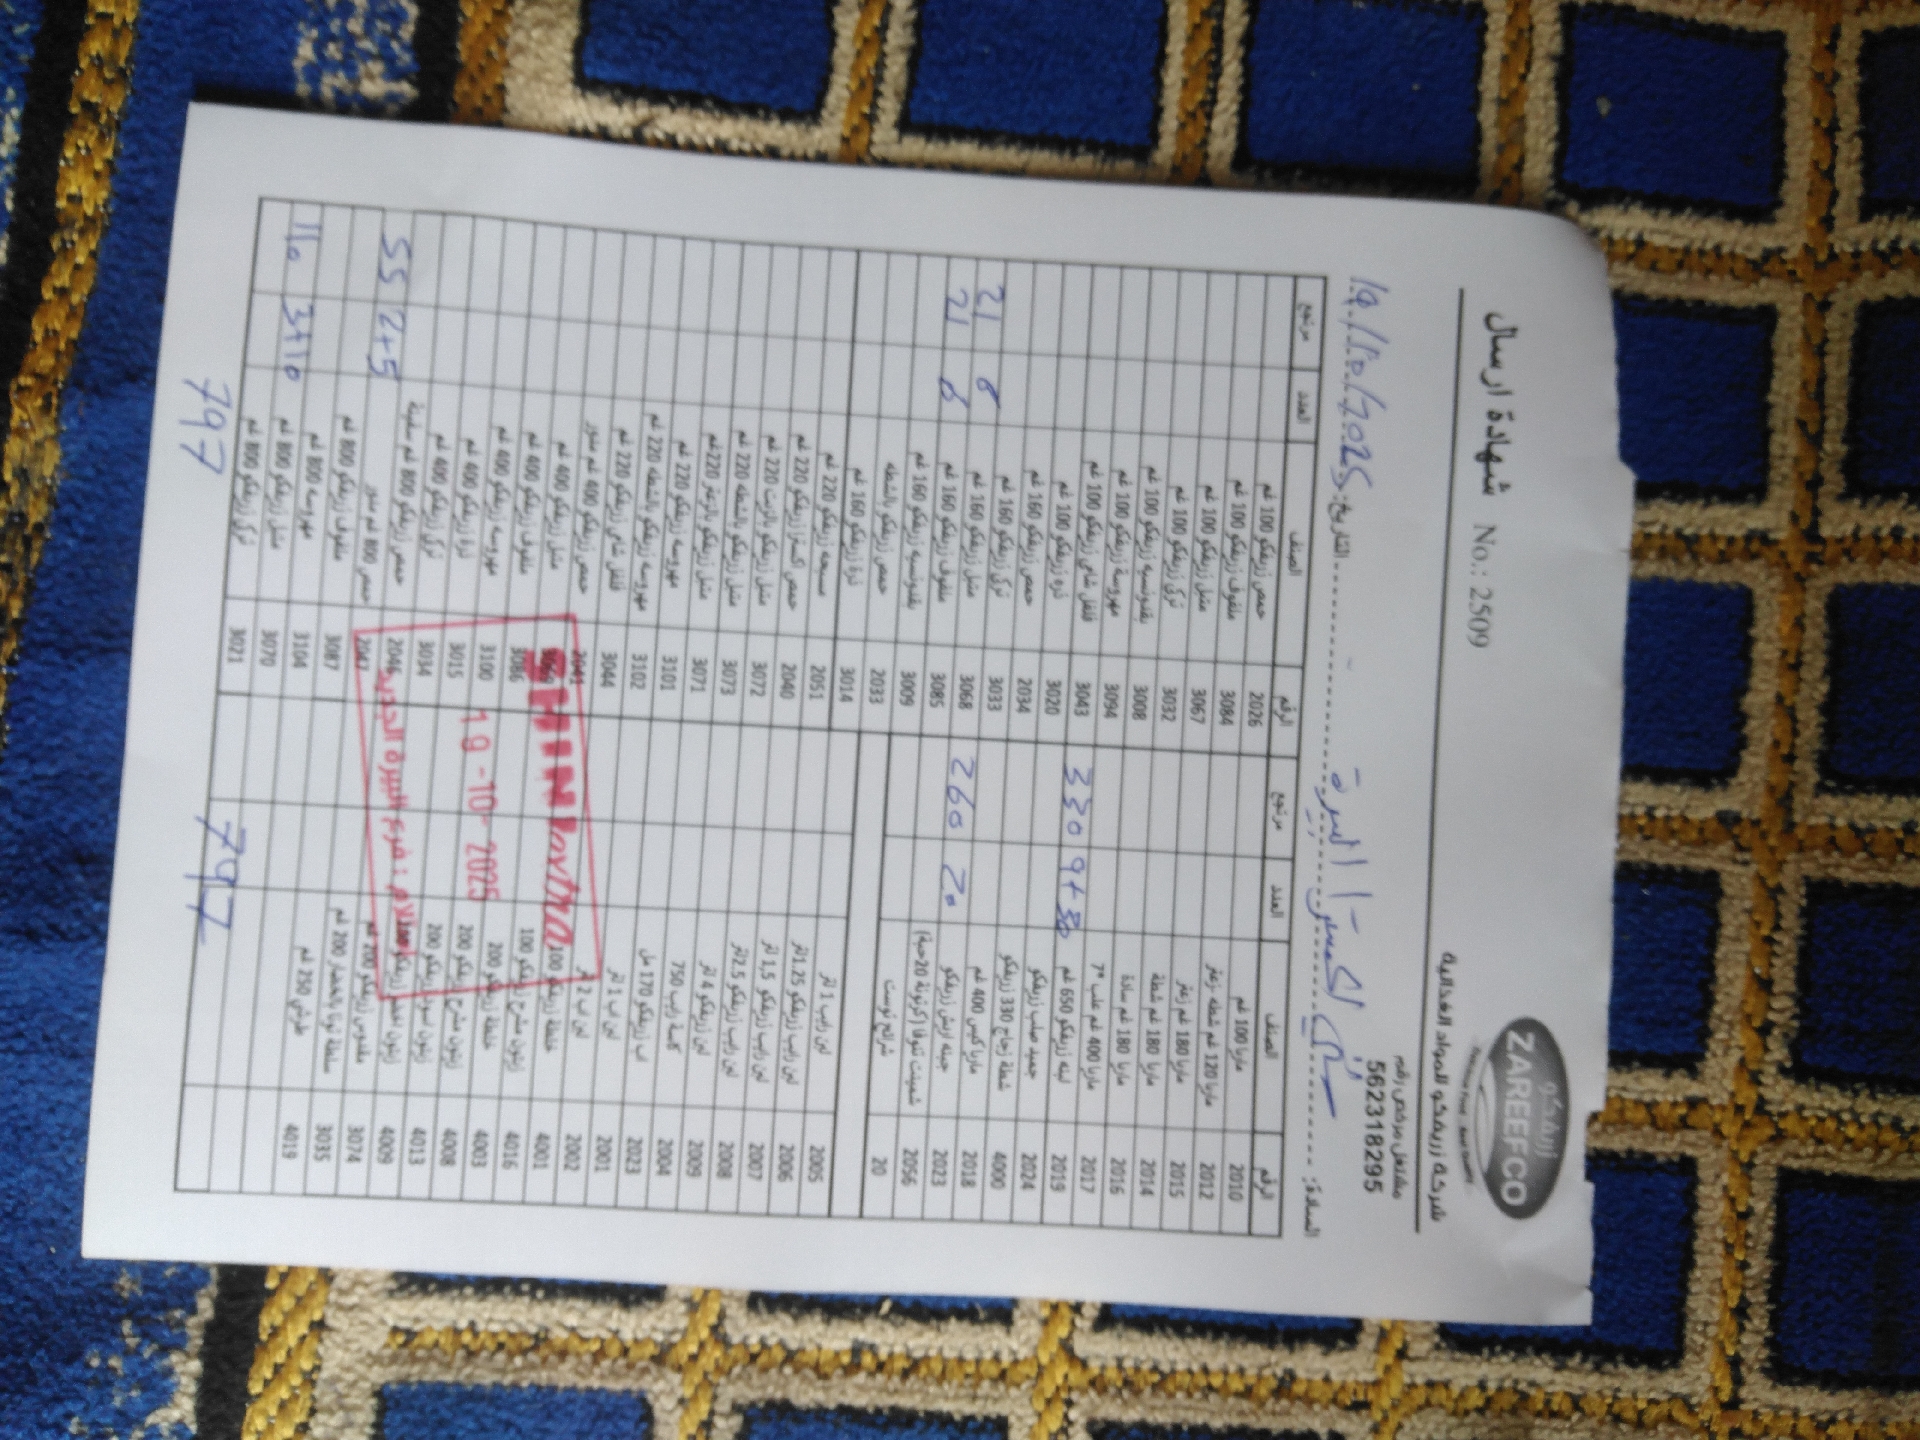 شركة زريفكو للمواد الغذائية
مشتغل مرخص رقم
562318295
زريفكو
ZAREEFCO
شهادة ارسال No.: 2509
السادة: البيرة التاريخ: 19/10/2025
الرقم الصنف العدد مرتجع الرقم الصنف العدد مرتجع
2010 ماربا 100 غم 2026 حمص زريفكو 100 غم
2012 ماربا 120 غم شطه زعتر 3084 ملفوف زريفكو 100 غم
2015 ماربا 180 غم زعتر 3067 متبل زريفكو 100 غم
2014 ماربا 180 غم شطة 3032 تركي زريفكو 100 غم
2016 ماربا 180 غم سادة 3008 بقدونسيه زريفكو 100 غم
2017 ماربا 400 غم علب *7 3094 مهروسة زريفكو 100 غم
2019 لبنه زريفكو 650 غم 9+30 330 3043 فلفل شامي زريفكو 100 غم
2024 جميد صلب زريفكو 3020 ذره زريفكو 100 غم
4000 شطة زجاج 330 زريفكو 2034 حمص زريفكو 160 غم
2018 ماربا كيس 400 غم 3033 تركي زريفكو 160 غم
2023 جبنه اريش زريفكو 20 260 3068 متبل زريفكو 160 غم 8 21
2056 شمينت تنوفا (كرتونة 20حبة) 3085 ملفوف زريفكو 160 غم 8 21
20 شرائح توست 3009 بقدونسيه زريفكو 160 غم
2033 حمص زريفكو بالشطه
3014 ذرة زريفكو 160 غم
2005 لبن رايب 1 لتر 2051 مسبحه زريفكو 220 غم
2006 لبن رايب زريفكو 1.25 لتر 2040 حمص اكسترا زريفكو 220 غم
2007 لبن رايب زريفكو 1,5 لتر 3072 متبل زريفكو بالزيت 220 غم
2008 لبن رايب زريفكو 2.5 لتر 3073 متبل زريفكو بالشطه 220 غم
2009 لبن زريفكو 4 لتر 3071 متبل زريفكو بالزعتر 220 غم
2004 كاسة رايب 750 3101 مهروسه زريفكو 220 غم
2023 اب زريفكو 170 مل 3102 مهروسه زريفكو بالشطه 220 غم
2001 لبن اب 1 لتر 3044 فلفل شامي زريفكو 220 غم
2002 لبن اب 2 لتر 2041 حمص زريفكو 400 غم منثور
4001 خلطة زريفكو 100 3069 متبل زريفكو 400 غم
4016 زيتون مشرح زريفكو 100 3086 ملفوف زريفكو 400 غم
4003 خلطة زريفكو 200 3100 مهروسه زريفكو 400 غم
4008 زيتون مشرح زريفكو 200 3015 ذرة زريفكو 400 غم
4013 زيتون اسود زريفكو 200 3034 تركي زريفكو 400 غم
4009 زيتون اخضر زريفكو 2046 حمص زريفكو 800 غم سفينة
3074 مقدوس زريفكو 200 غم 2047 حمص 800 غم منثور 2+5 55
3035 سلطة تونا بالخضار 200 غم 3087 ملفوف زريفكو 800 غم
4019 طرشي 250 غم 3104 مهروسه 800 غم
3070 متبل زريفكو 800 غم 3+10 110
3021 تركي زريفكو 800 غم
SHINI extra
19-10-2025
استلام : فرع البيرة الجديد
797 797